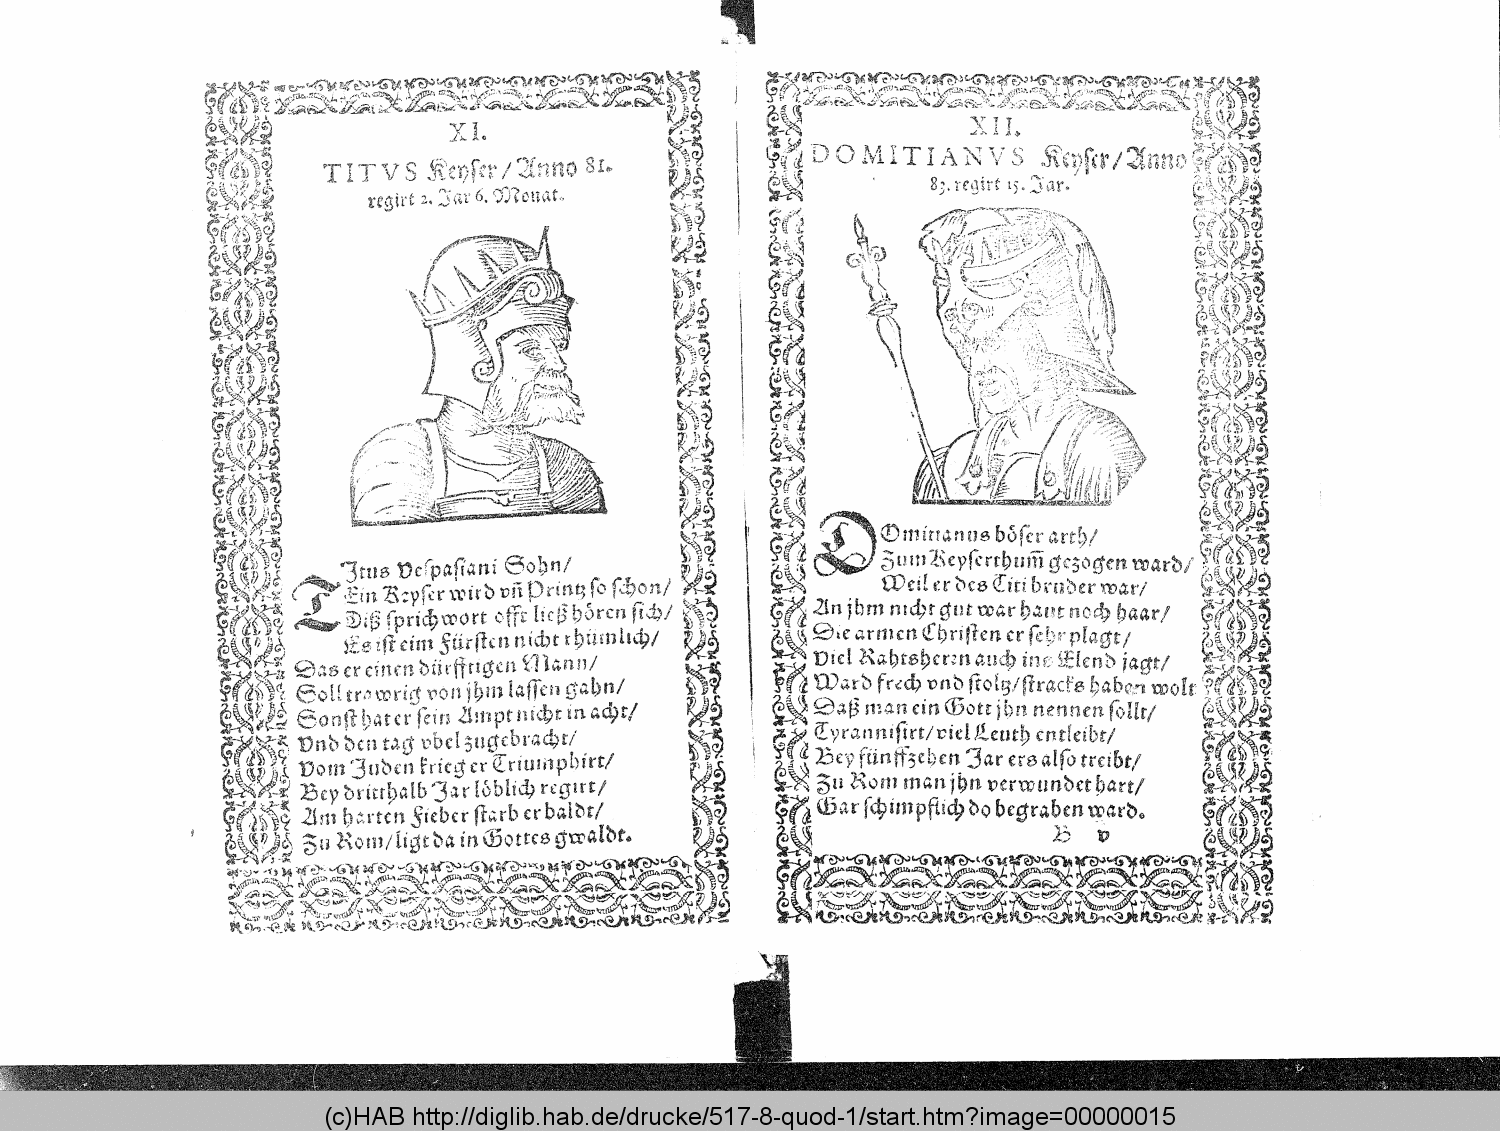 XI.
TITVS Keyser/Anno 81.
regirt 2. Jar 6. Monat.
TItus Vespasiani Sohn/
Ein Keyser wird vn̄ Printz so schon/
Diß sprichwort offt ließ hören sich/
Es ist eim Fürsten nicht rhümlich/
Das er einen dürfftigen Mann/
Soll trawrig von jhm lassen gahn/
Sonst hat er sein Ampt nicht in acht/
Vnd den tag vbel zugebracht/
Vom Juden krieg er Triumphirt/
Bey dritthalb Jar löblich regirt/
Am harten Fieber starb er baldt/
Zu Rom/ligt da in Gottes gwaldt.
XII.
DOMITIANVS Keyser/Anno
83. regirt 15. Jar.
DOmitianus böser arth/
Zum Keyserthum̄ gezogen ward/
Weil er des Titi bruder war/
An jhm nicht gut war haut noch haar/
Die armen Christen er sehr plagt/
Viel Rahtsherrn auch ins Elend jagt/
Ward frech vnd stoltz/stracks haben wolt
Daß man ein Gott jhn nennen sollt/
Tyrannisirt/viel Leuth entleibt/
Bey fünffzehen Jar ers also treibt/
Zu Rom man jhn verwundet hart/
Gar schimpflich do begraben ward.
B v
(c)HAB http://diglib.hab.de/drucke/517-8-quod-1/start.htm?image=00000015